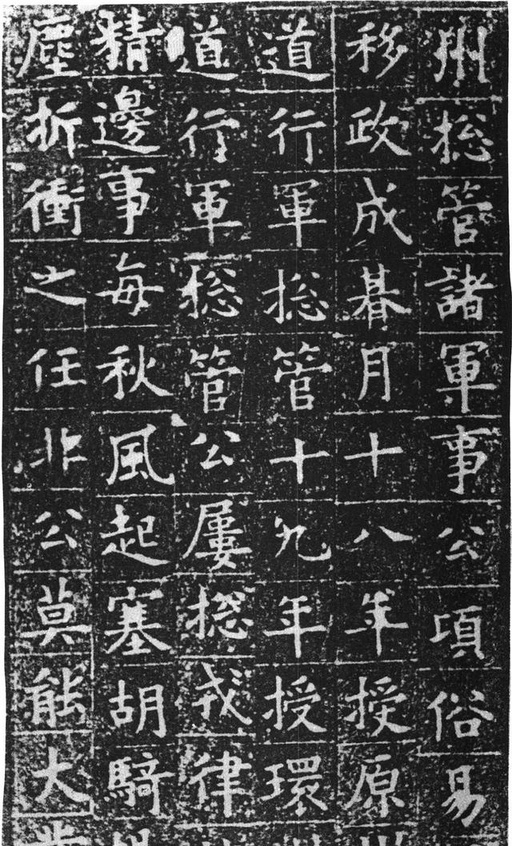 州捴管諸軍事公項俗易
移政成朞月十八年授原
道行軍捴管十九年授環
道行軍捴管公屢捴戎律
精邊事每秋風起塞胡騎
塵折衝之任非公莫能大